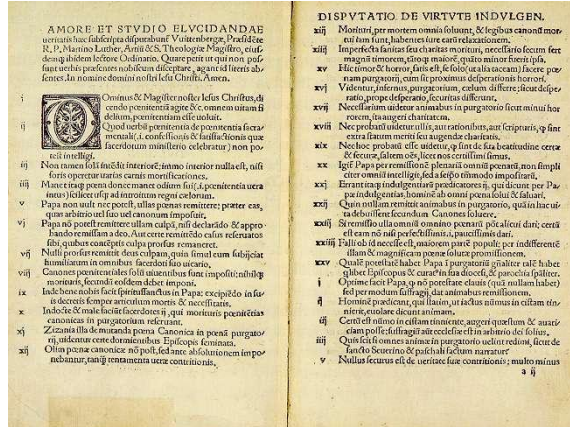 AMORE ET STVDIO ELVCIDANDAE
ueritatis hæc subscripta disputabunť Vuittenbergæ, Præsidéte
R. P. Martino Luther, Artiũ & S. Theologiæ Magistro, eius-
demq; ibidem lectore Ordinario. Quare petit ut qui non pos-
sunt uerbis præsentes nobiscum disceptare, agant id literis ab-
sentes. In nomine domini nostri Iesu Christi. Amen.
i Dominus & Magister noster Iesus Christus, di
cendo pœnitentiã agite &c. omnem uitam fi
delium, pœnitentiam esse uoluit.
ij Quod uerbũ pœnitentia de pœnitentia sacra
mentali (.i. confessionis & satisfactionis quæ
sacerdotum ministerio celebratur) non po-
test intelligi.
iij Non tamen solã intẽdit interiorẽ; immo interior nulla est, nisi
foris operetur uarias carnis mortificationes.
iiij Manet itaq; pœna donec manet odium sui (.i. pœnitentia uera
intus) scilicet usq; ad introitum regni cælorum.
v Papa non uult nec potest, ullas pœnas remittere; præter eas,
quas arbitrio uel suo uel canonum imposuit.
vj Papa nõ potest remittere ullam culpã, nisi declarãdo & appro-
bando remissam a deo. Aut certe remittẽdo casus reseruatos
sibi, quibus contẽptis culpa prorsus remaneret.
vij Nulli prorsus remittit deus culpam, quin simul eum subijciat
humiliatum in omnibus sacerdoti suo uicario.
viij Canones pœnitentiales solũ uiuentibus sunt impositi; nihilq;
morituris, secundũ eosdem debet imponi.
ix Inde bene nobis facit spiritussanctus in Papa: excipiẽdo in su-
is decretis semper articulum mortis & necessitatis.
x Indocte & male faciũt sacerdotes ij, qui morituris pœnitẽtias
canonicas in purgatorium reseruant.
xj Zizania illa de mutanda pœna Canonica in pœnã purgato-
rij, uidentur certe dormientibus Episcopis seminata.
xij Olim pœnæ canonicæ nõ post, sed ante absolutionem impo-
nebantur, tanq̃ tentamenta ueræ contritionis.
DISPVTATIO DE VIRTVTE INDVLGEN.
xiij Morituri, per mortem omnia soluunt, & legibus canonũ mor-
tui iam sunt, habentes iure earũ relaxationem.
xiiij Imperfecta sanitas seu charitas morituri, necessario secum fert
magnũ timorem, tãtoq; maiorẽ, quãto minor fuerit ipsa.
xv Hic timor & horror, satis est, se solo (ut alia taceam) facere pœ-
nam purgatorij, cum sit proximus desperationis horrori.
xvj Videntur, infernus, purgatorium, cælum differre; sicut despe-
ratio, prope desperatio, securitas differunt.
xvij Necessarium uidetur animabus in purgatorio sicut minui hor
rorem, ita augeri charitatem.
xviij Nec probatũ uidetur ullis, aut rationibus, aut scripturis, q̃ sint
extra statum meriti seu augendæ charitatis.
xix Nec hoc probatũ esse uidetur, q̃ sint de sua beatitudine certæ
& securæ, saltem oẽs, licet nos certissimi simus.
xx Igiť Papa per remissionẽ plenariã omniũ pœnarũ, non simpli
citer omniũ intelligit, sed a seipso tñmodo impositarũ.
xxj Errant itaq; indulgentiarũ prædicatores ij, qui dicunt per Pa-
pæ indulgentias, hominẽ ab omni pœna solui & saluari.
xxij Quin nullam remittit animabus in purgatorio, quã in hac ui-
ta debuissent secundum Canones soluere.
xxiij Si remissio ulla omniũ omnino pœnarũ põt alicui dari; certũ
est eam nõ nisi perfectissimis, .i. paucissimis dari.
xxiiij Falli ob id necesse est, maiorem partẽ populi; per indifferentẽ
illam & magnificam pœnæ solutæ promissionem.
xxv Qualẽ potestatẽ habet Papa ĩ purgatoriũ gñaliter talẽ habet
quilibet Episcopus & curaťin sua diocesi, & parochia spãliter.
i Optime facit Papa, q̃ nõ potestate clauis (quã nullam habet)
sed per modum suffragij, dat animabus remissionem.
ij Hominẽ prædicant, qui statim, ut iactus nũmus in cistam tin-
nierit, euolare dicunt animam.
iij Certũ est nũmo in cistam tinniente, augeri quæstum & auari-
ciam posse; suffragiũ aũt ecclesiæ est in arbitrio dei solius.
iiij Quis scit si omnes animæ in purgatorio uelint redimi, sicut de
sancto Seuerino & paschali factum narratur
v Nullus securus est de ueritate suæ contritionis; multo minus
a ij